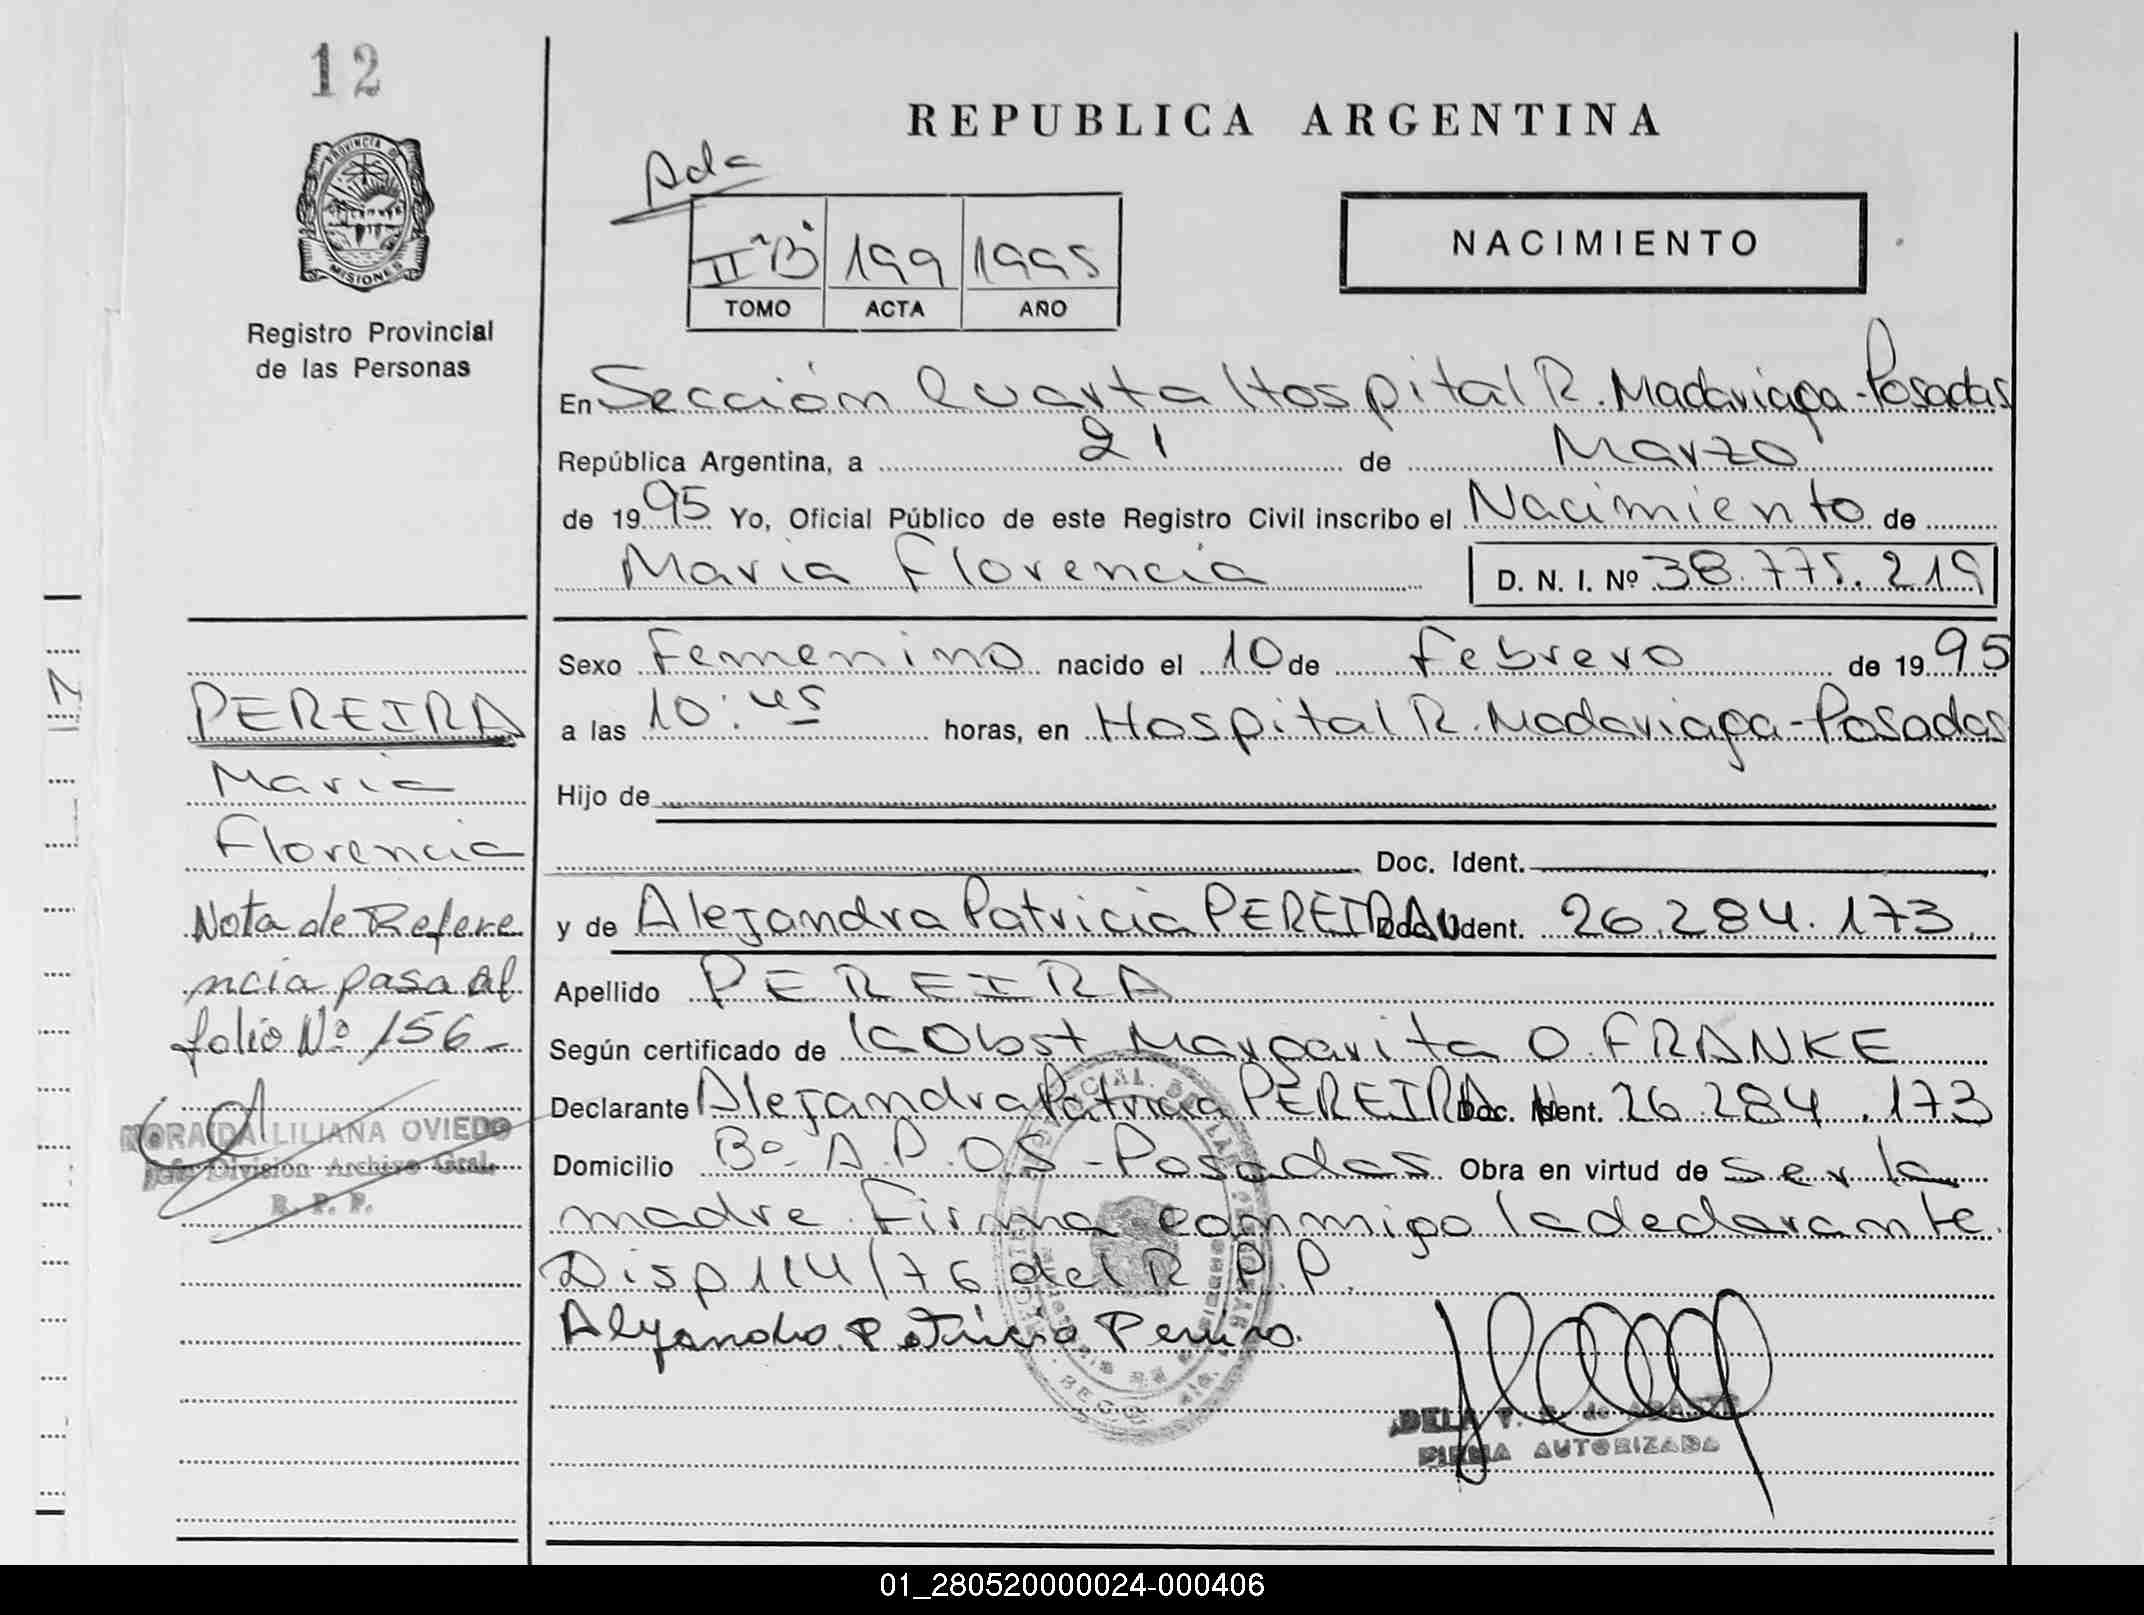 12
REPUBLICA ARGENTINA
PROVINCIA DE
MISIONES
Registro Provincial
de las Personas
Ada
II "B" 199 1995
TOMO ACTA AÑO
NACIMIENTO
En Sección Cuarta Hospital R. Madariaga - Posadas
República Argentina, a 21 de Marzo
de 1995 Yo, Oficial Público de este Registro Civil inscribo el Nacimiento de
Maria Florencia D. N. I. Nº 38.775.219
Sexo Femenino nacido el 10 de Febrero de 1995
a las 10:45 horas, en Hospital R. Madariaga - Posadas
Hijo de
Doc. Ident.
y de Alejandra Patricia PEREIRA Doc. Ident. 26.284.173
Apellido PEREIRA
Según certificado de la Obst Margarita O. FRANKE
Declarante Alejandra Patricia PEREIRA Doc. Ident. 26.284.173
Domicilio Bº A.P.OS - Posadas Obra en virtud de ser la
madre. Firma conmigo la declarante.
Disp 114/76 del R.P.P.
Alejandra Patricia Pereira.
FIRMA AUTORIZADA
PEREIRA
Maria
Florencia
Nota de Refere
ncia pasa al
folio Nº 156_
NORAIDA LILIANA OVIEDO
Jefe División Archivo Gral.
R. P. P.
01_280520000024-000406